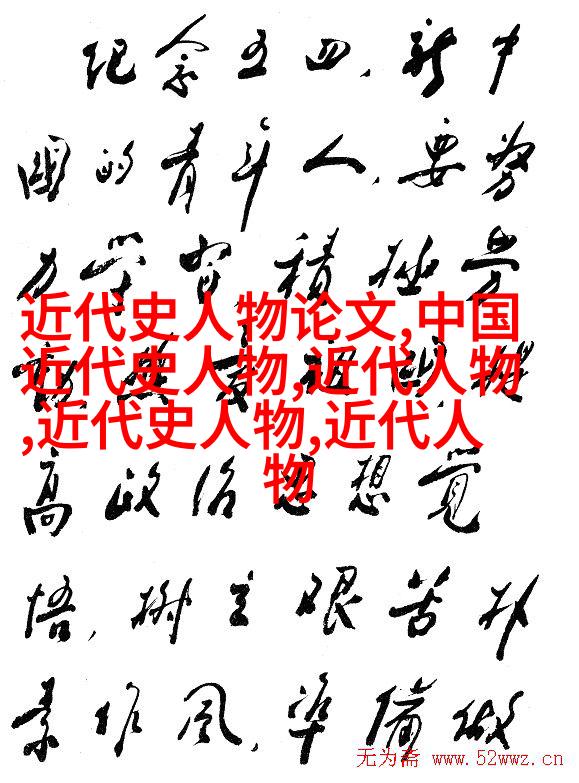 纪念五四，新中
国的青年人，要努
力学习，積極劳
近代史人物论文,中国
近代史人物,近代人物
,近代史人物,近代人
物
高政治思想覺
悟，樹立艰苦朴
素作风，準備做
无为斋 www.52wwz.cn